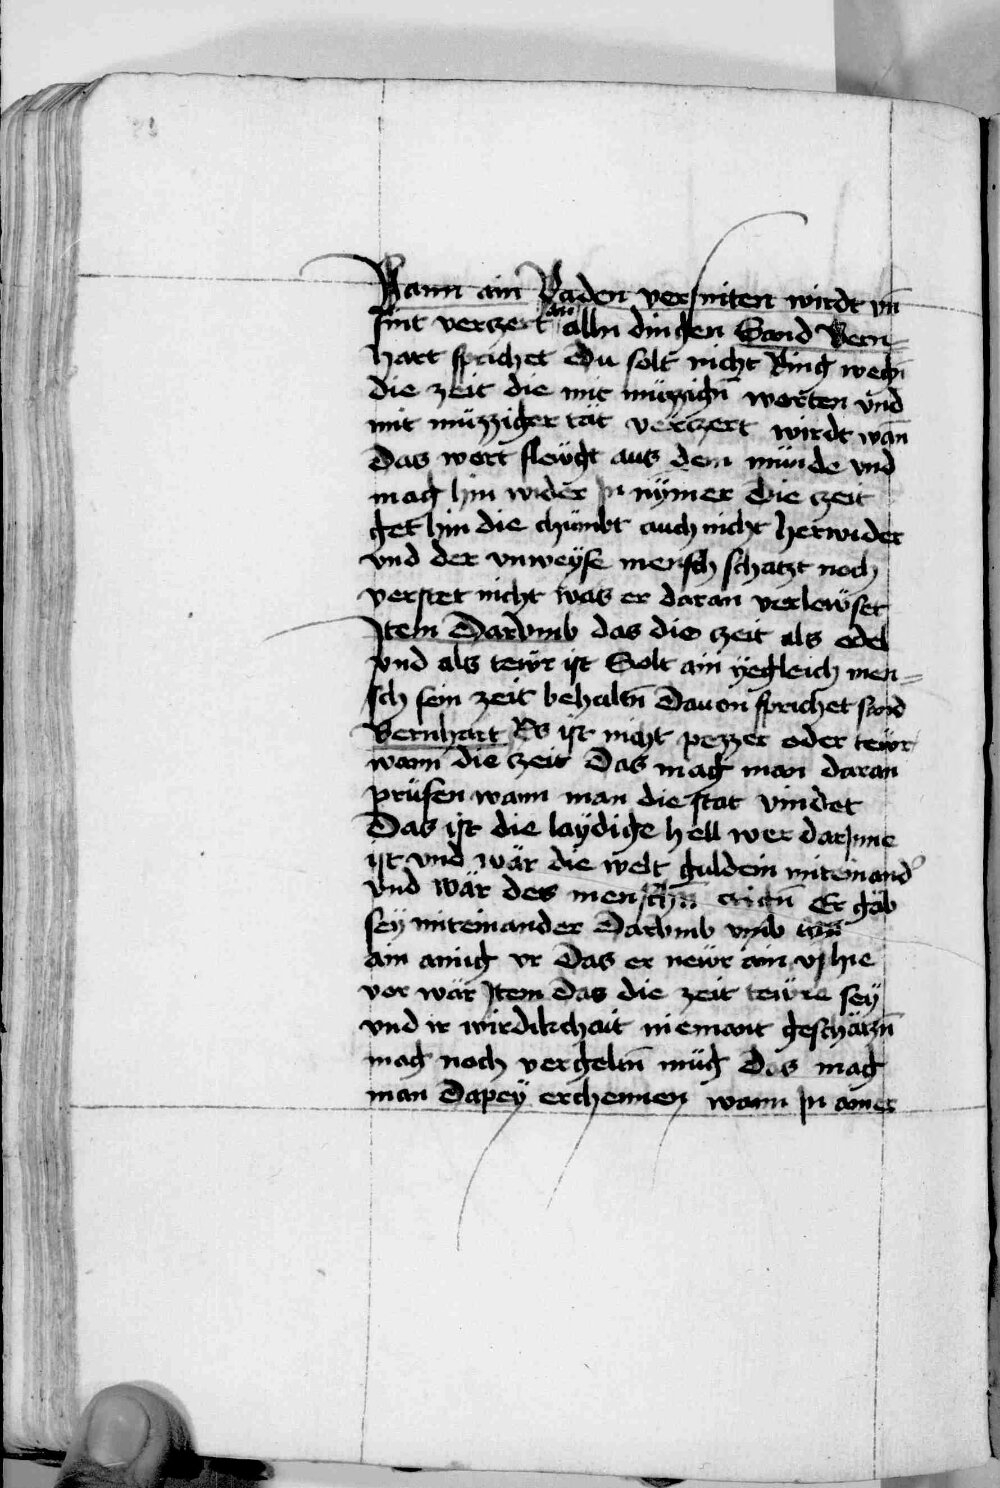 Wann ain Vaden versniten wirdt vn̄
sint verczert an alln dingen Sand Bern-
hart sprichet Du solt nicht Ring wegn̄
die zeit die mit müzzign̄ worten vnd
mit müzziger tät verczert wirdt wan̄
Das wort flewgt aus dem munde vnd
mag hin wider In nÿmer Die czeit
get hin die chümbt auch nicht herwider
vnd der vnweÿse mensch schatzt noch
verstet nicht was er daran verlewset
Item Darvmb das die czeit als edel
vnd als tewr ist Solt ain ÿegleich men-
sch sein zeit behaltn̄ Dauon sprichet sand
Bernhart Es ist nicht pezzer oder tewr
wann die czeit Das mag man daran
prüfen wann man die stat vindet
Das ist die laÿdige hell wer darinne
ist vnd wär die welt guldein miteinand'
vnd wär des menschn̄ aign̄ Er gäb
seÿ miteinander Darvmb vmb
ain ainig vr Das er newr ain vr hie
vor wär Item das die zeit tewre seÿ
vnd ir wirdikchait niemant geschäczn̄
mag noch vergeltn̄ müg Das mag
man Dapeÿ erchennen wann In ainer